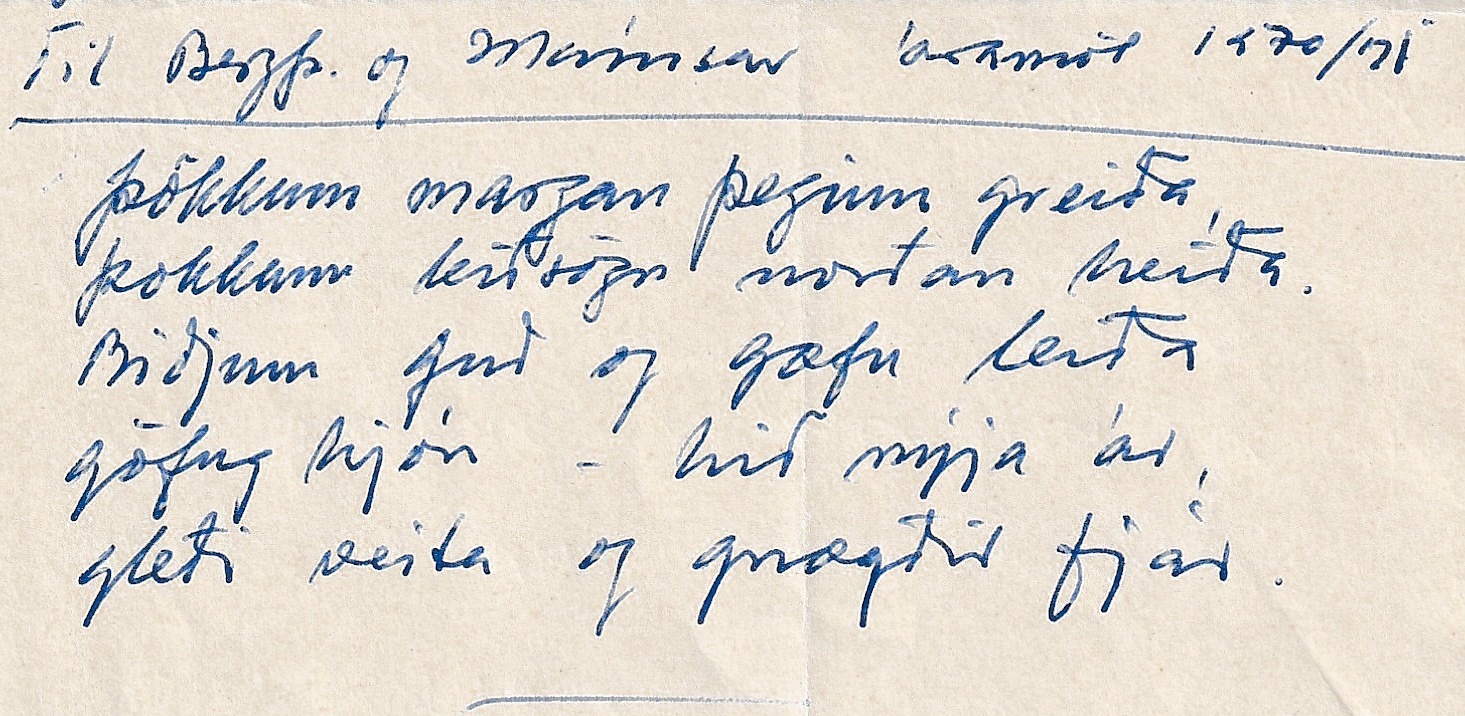 Til Bergþ. og Magnúsar áramót 1970/71
Þökkum margan þeginn greiða,
þokkum leiðsögn norðan heiða.
Biðjum guð og gæfu leiða
göfug hjón - hið nýja ár,
gleði veita og gnægðir fjár.